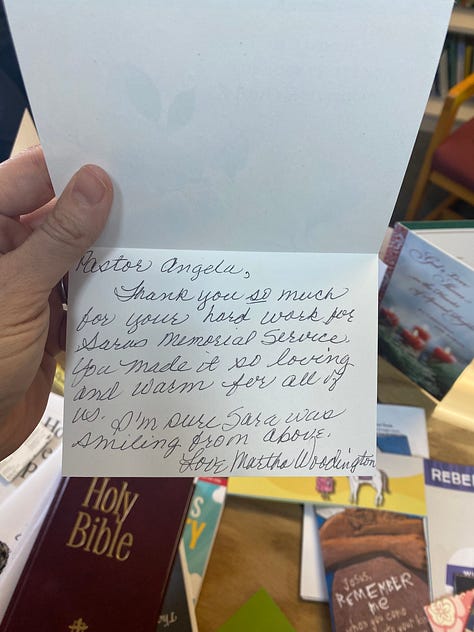 Pastor Angela,
Thank you so much
for your hard work for
Saras Memorial Service.
You made it so loving
and warm for all of
us. I'm sure Sara was
smiling from above.
Love Martha Woodington
Holy
Bible
REBE
Jesus,
REMEMBER
me
when you come